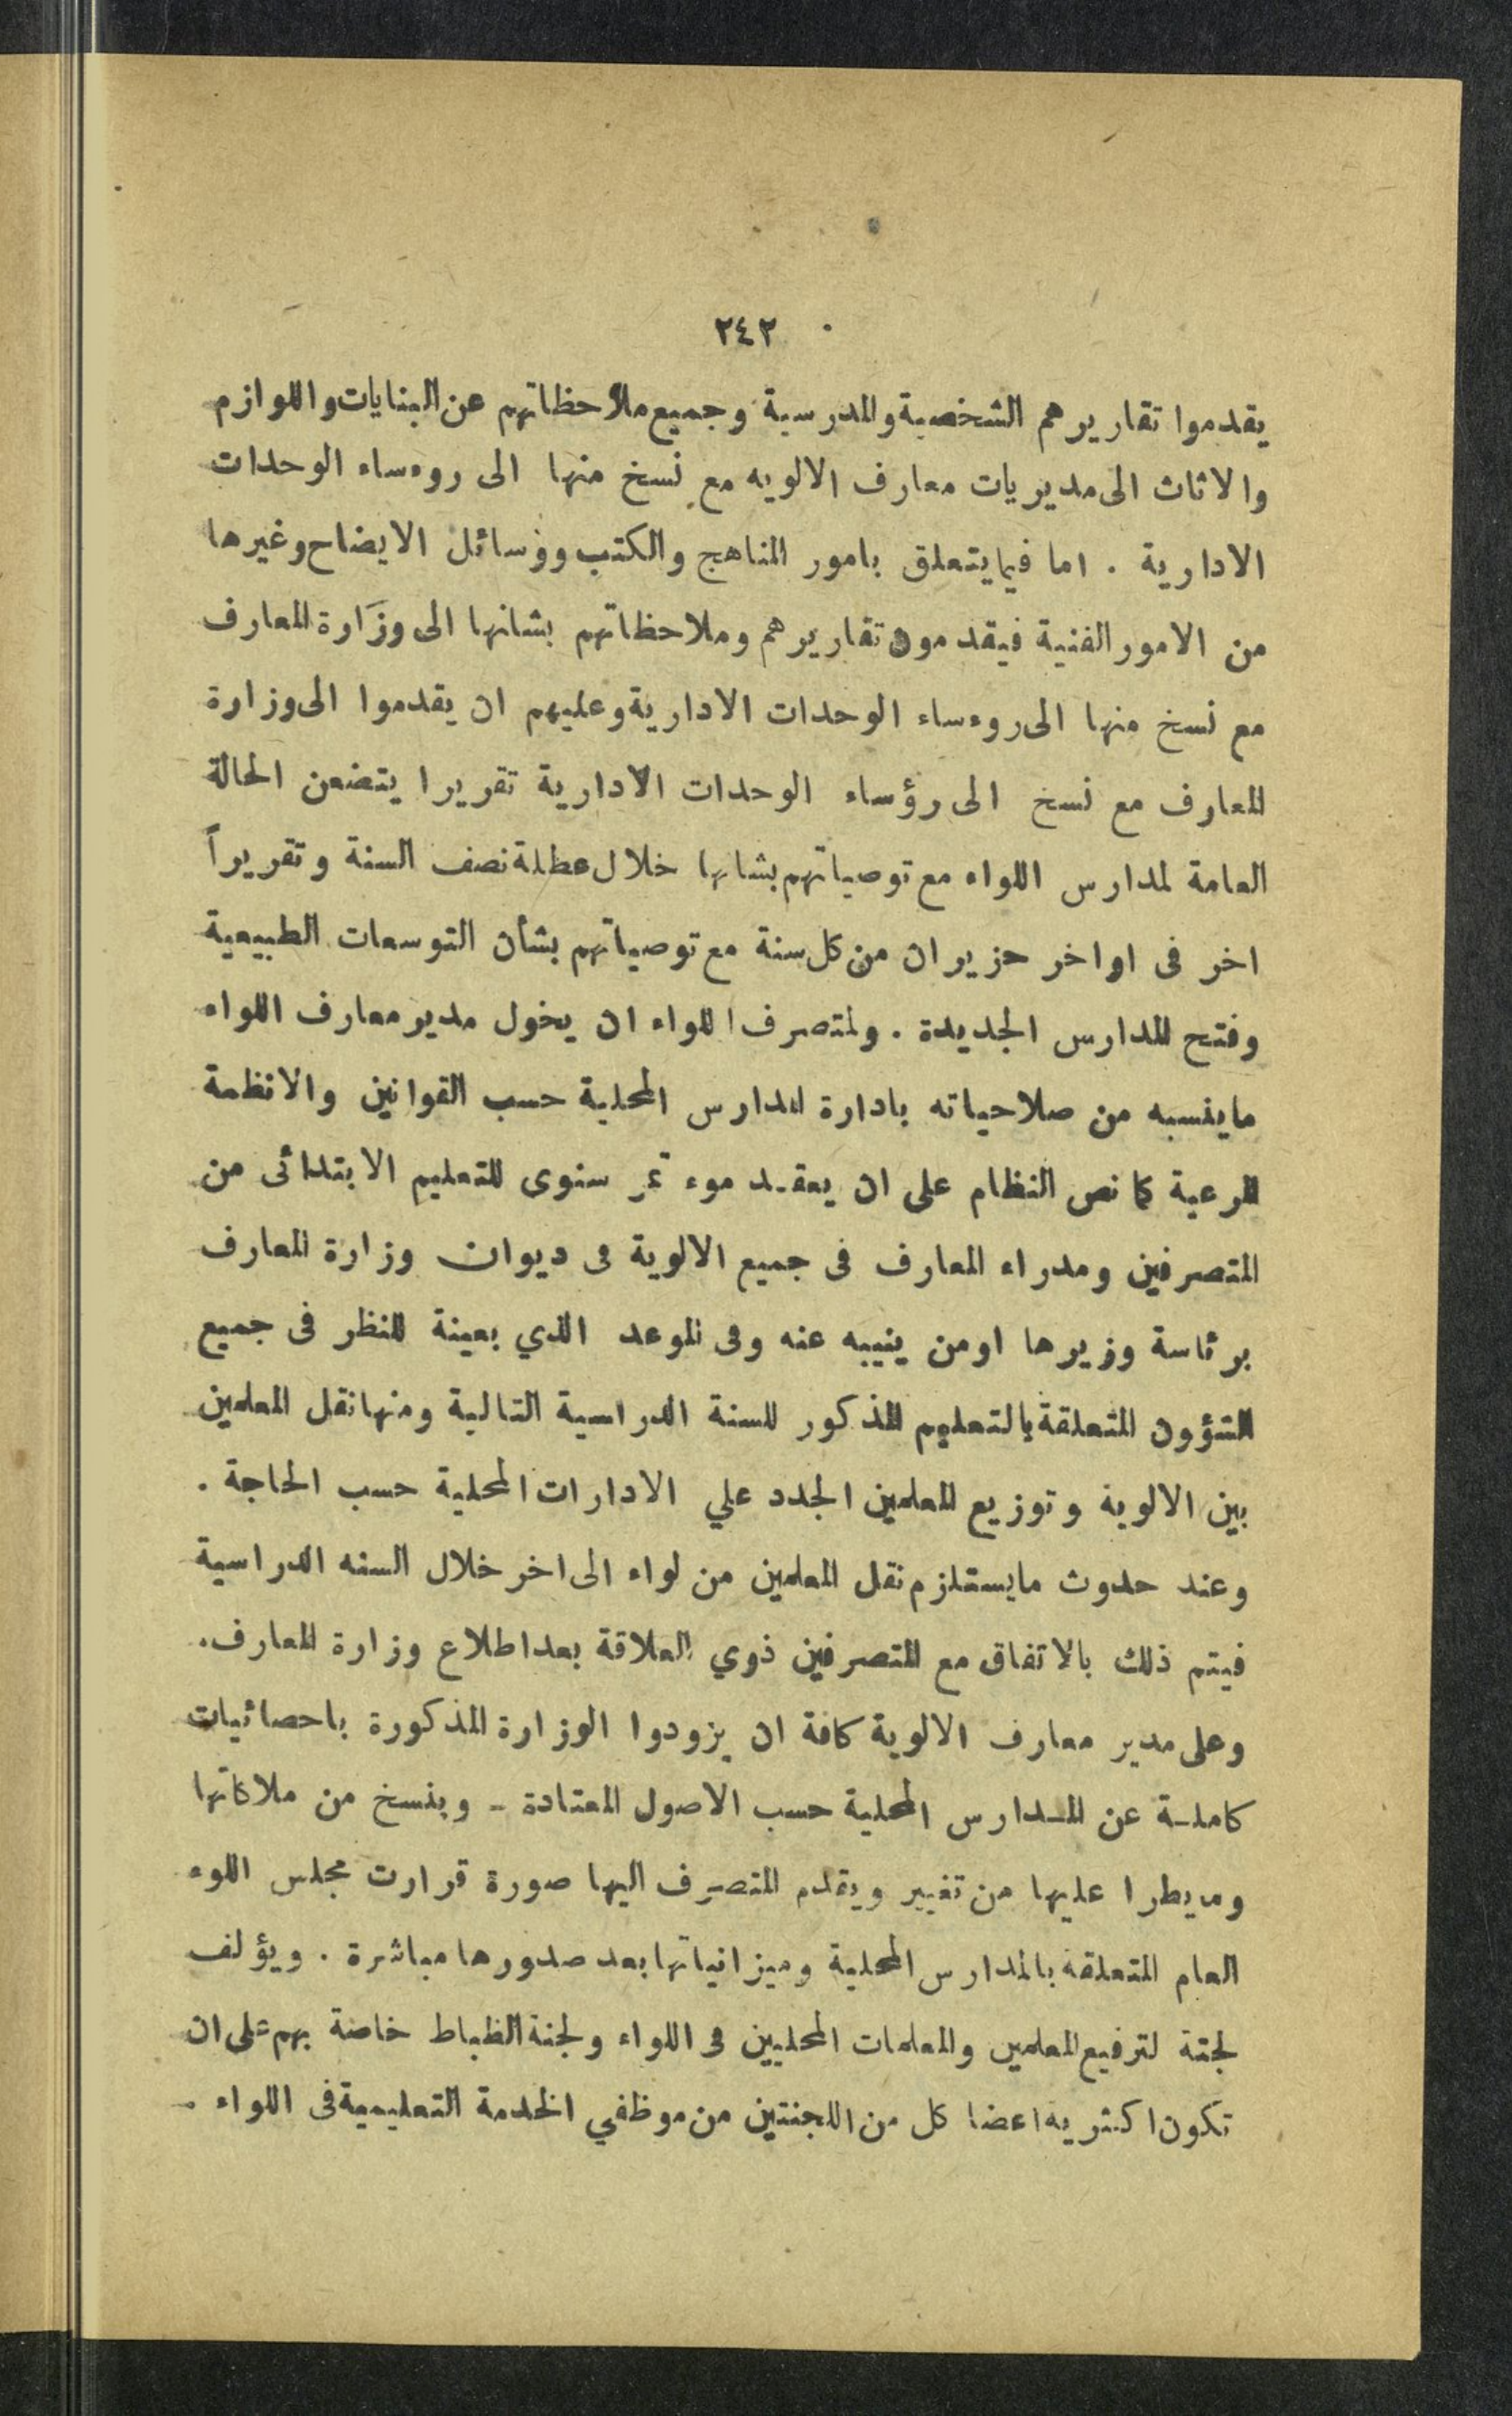 ٢٤٢
يقدموا تقاريرهم الشخصية والمدرسية وجميع ملاحظاتهم عن البنايات واللوازم
والاثاث الى مديريات معارف الالويه مع نسخ منها الى روءساء الوحدات
الادارية . اما فيما يتعلق بامور المناهج والكتب ووسائل الايضاح وغيرها
من الامور الفنية فيقدمون تقاريرهم وملاحظاتهم بشانها الى وزارة المعارف
مع نسخ منها الى روءساء الوحدات الادارية وعليهم ان يقدموا الى وزارة
المعارف مع نسخ الى رؤساء الوحدات الادارية تقريرا يتضمن الحالة
العامة لمدارس اللواء مع توصياتهم بشانها خلال عطلة نصف السنة وتقريراً
اخر فى اواخر حزيران من كل سنة مع توصياتهم بشأن التوسعات الطبيعية
وفتح المدارس الجديدة . ولمتصرف اللواء ان يخول مدير معارف اللواء
ماينسبه من صلاحياته بادارة المدارس المحلية حسب القوانين والانظمة
المرعية كما نص النظام على ان يعقد موءتمر سنوى للتعليم الابتدائى من
المتصرفين ومدراء المعارف فى جميع الالوية فى ديوان وزارة المعارف
برئاسة وزيرها اومن ينيبه عنه وفى الموعد الذي بعينة للنظر فى جميع
الشؤون المتعلقة بالتعليم المذكور للسنة الدراسية التالية ومنها نقل المعلمين
بين الالوية وتوزيع المعلمين الجدد علي الادارات المحلية حسب الحاجة .
وعند حدوث مايستلزم نقل المعلمين من لواء الى اخر خلال السنه الدراسية
فيتم ذلك بالاتفاق مع المتصرفين ذوي العلاقة بعد اطلاع وزارة المعارف.
وعلى مدير معارف الالوية كافة ان يزودوا الوزارة المذكورة باحصائيات
كاملة عن المدارس المحلية حسب الاصول المعتادة - وبنسخ من ملاكاتها
ومايطرا عليها من تغيير ويقدم المتصرف اليها صورة قرارت مجلس اللوء
العام المتعلقة بالمدارس المحلية وميزانياتها بعد صدورها مباشرة . ويؤلف
لجنة لترفيع المعلمين والمعلمات المحليين فى اللواء ولجنة انظباط خاصة بهم على ان
تكون اكثرية اعضا كل من اللجنتين من موظفي الخدمة التعليمية فى اللواء .